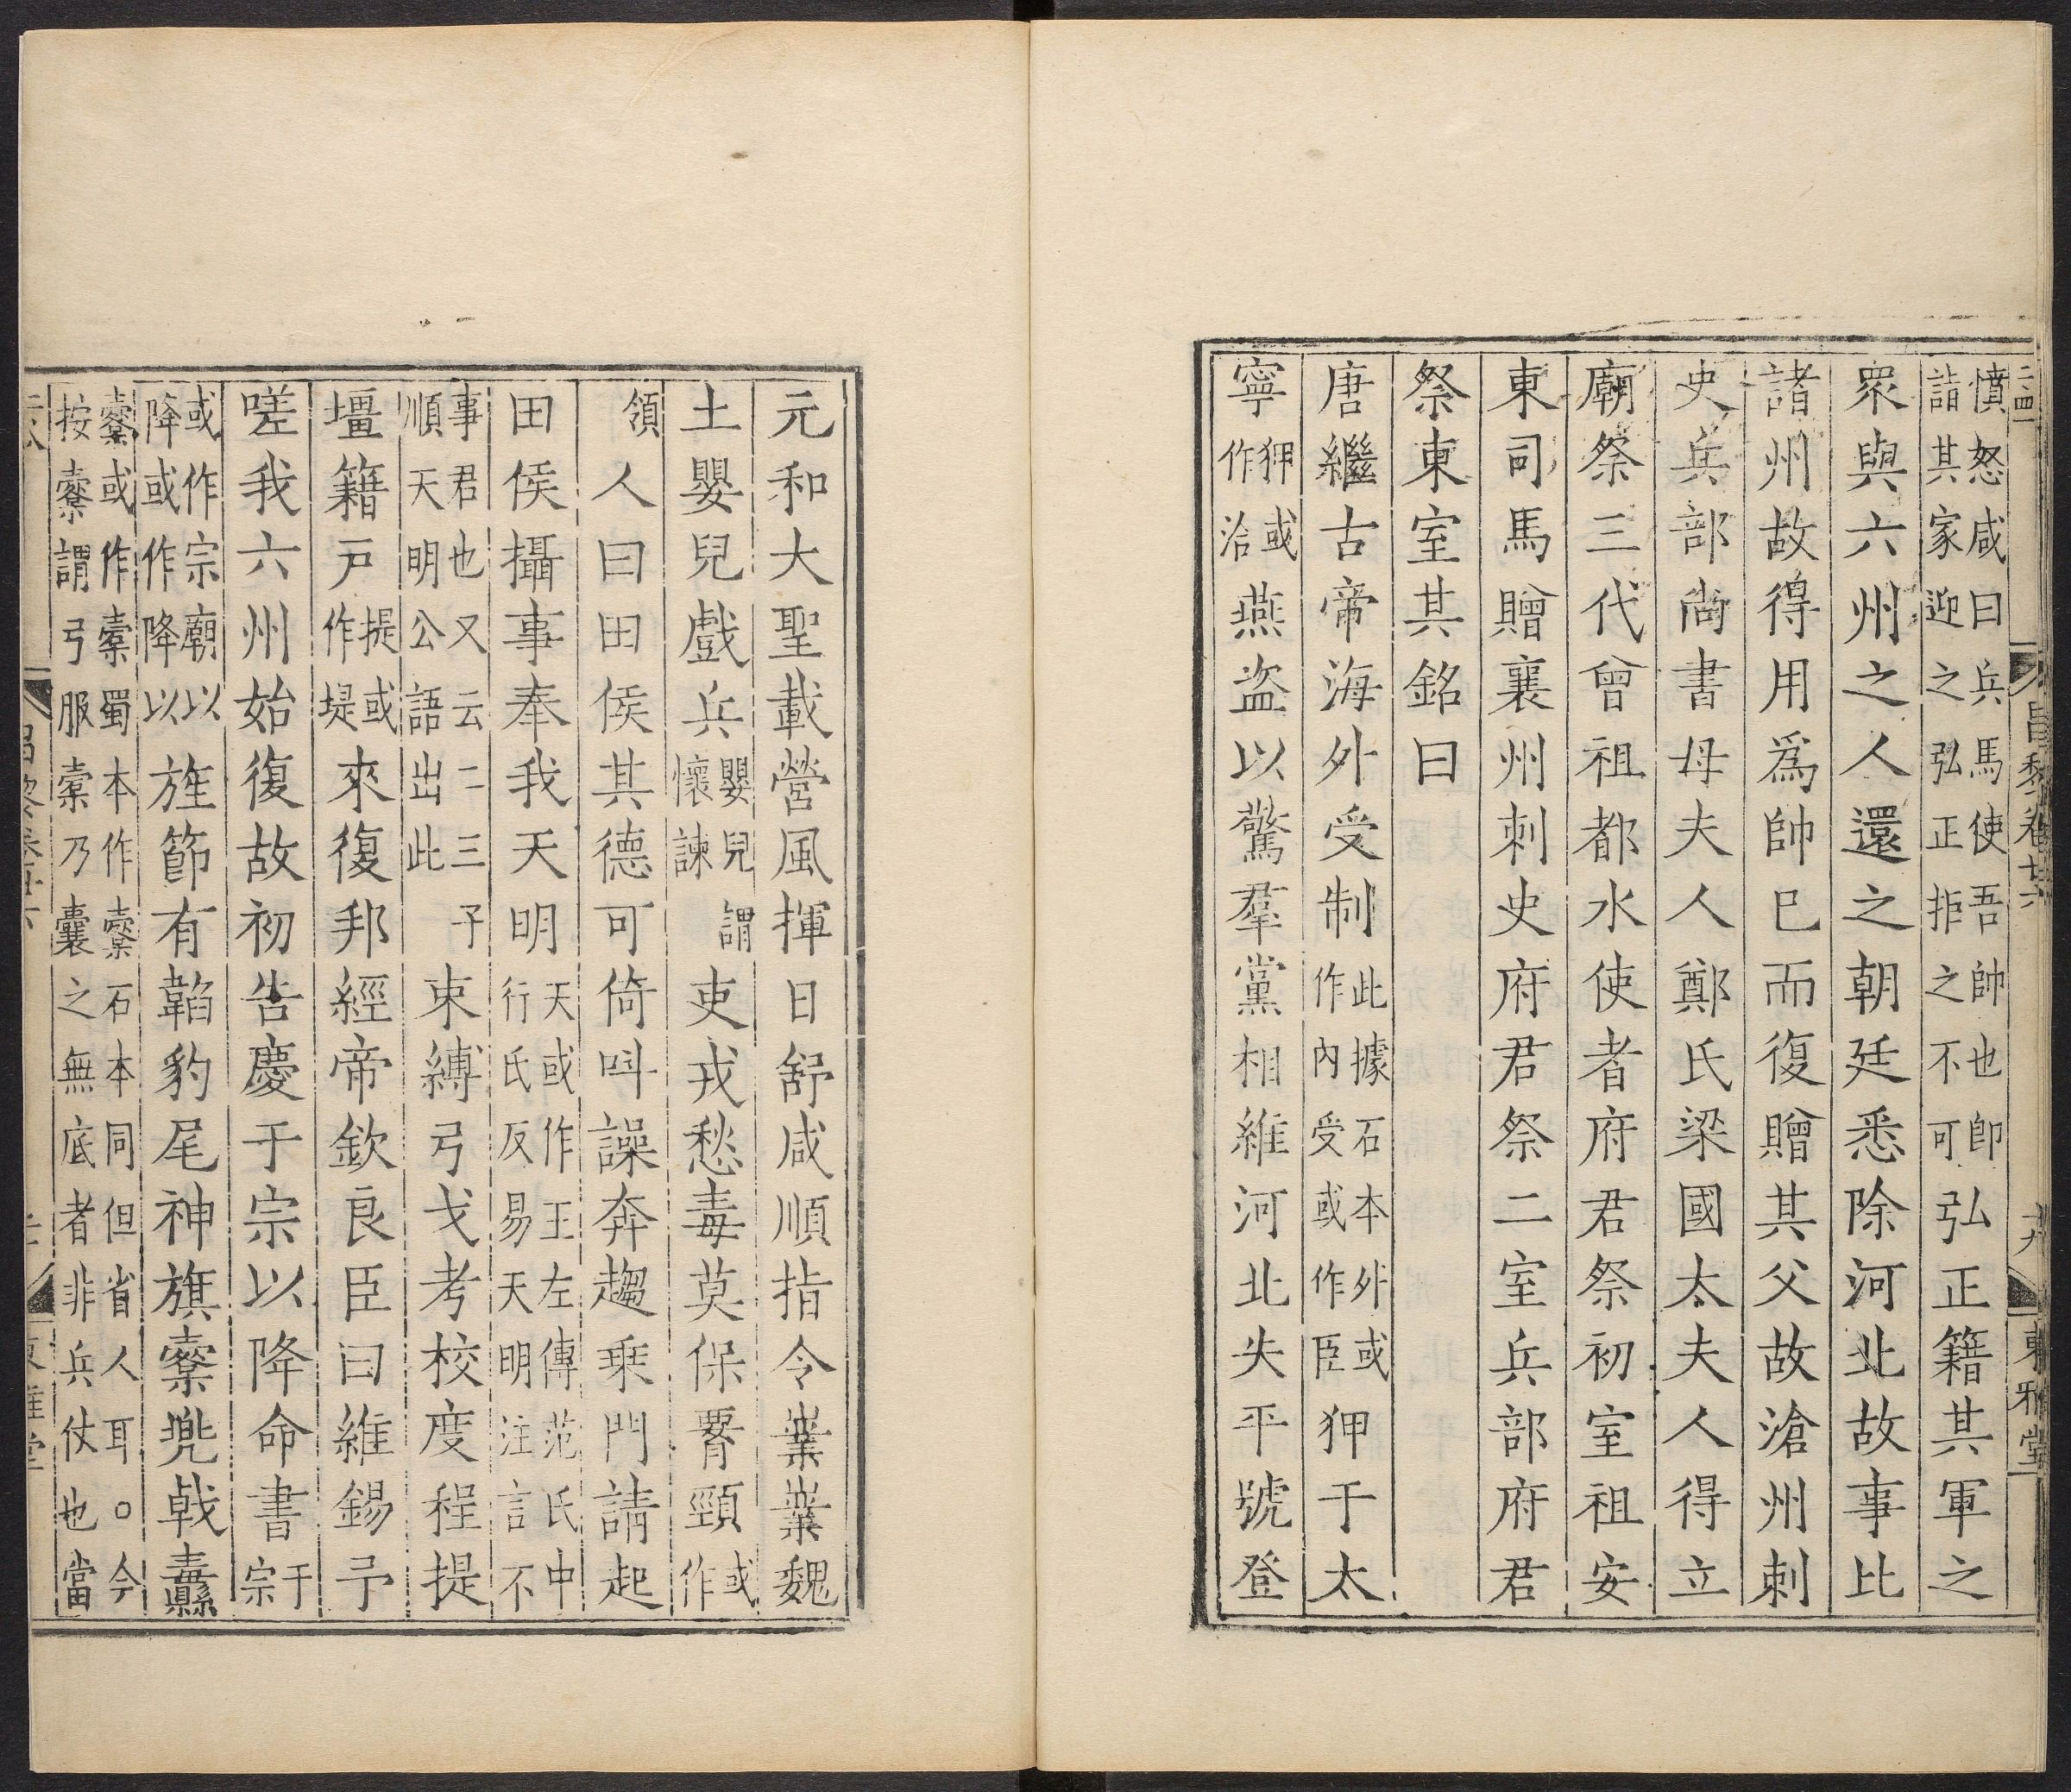 昌黎卷廿六
十九
東雅堂
憤怒咸曰兵馬使吾帥也卽
詣其家迎之弘正拒之不可弘正籍其軍之
衆與六州之人還之朝廷悉除河北故事比
諸州故得用爲帥已而復贈其父故滄州刺
史兵部尚書母夫人鄭氏梁國太夫人得立
廟祭三代曾祖都水使者府君祭初室祖安
東司馬贈襄州刺史府君祭二室兵部府君
祭東室其銘曰
唐繼古帝海外受制此據石本外或作內受或作臣狎于太
寧狎或作洽燕盗以驚羣黨相維河北失平號登
元和大聖載營風揮日舒咸順指令業業魏
土嬰兒戲兵嬰兒謂懷諫吏戎愁毒莫保腎頸或作
領人曰田侯其德可倚叫譟奔趨乗門請起
田侯攝事奉我天明天或作王左傳范氏中行氏反易天明注言不
事君也又云二三子順天明公語出此束縛弓戈考校度程提
壃籍戸提或作堤來復邦經帝欽良臣曰維錫予
嗟我六州始復故初告慶于宗以降命書于宗
或作宗廟以降或作降以旌節有韜豹尾神旗櫜兠戟纛
櫜或作橐蜀本作櫜石本同但省人耳○今
按櫜謂弓服橐乃囊之無底者非兵仗也當